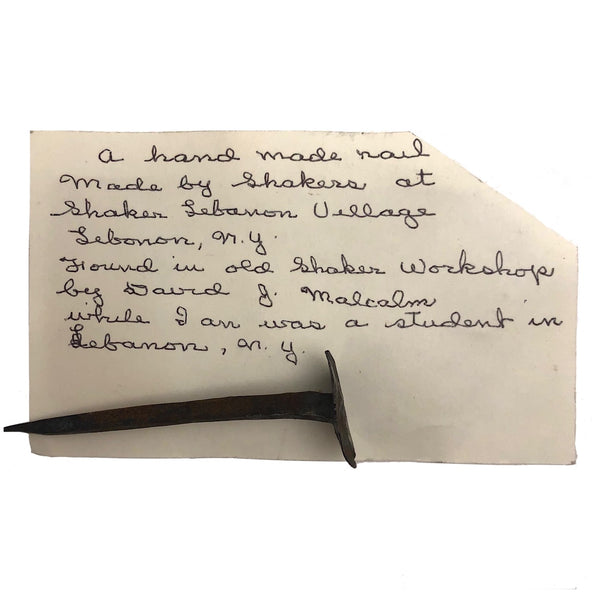 A hand made nail
Made by Shakers at
Shaker Lebanon Village
Lebonon, N.Y.
Found in old Shaker Workshop
by David J. Malcalm
while I an was a student in
Lebanon, N.Y.